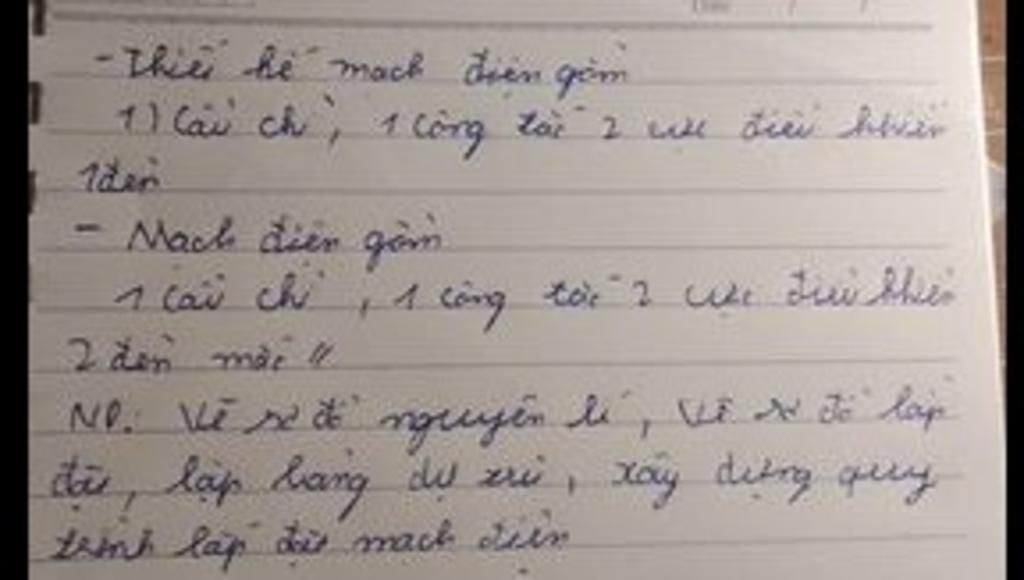 - Thiết kế mạch điện gồm
1) Cầu chì, 1 công tắc 2 cực điều khiển
1 đèn
- Mạch điện gồm
1 cầu chì, 1 công tắc 2 cực điều khiển
2 đèn mắc //
ND: Vẽ sơ đồ nguyên lí, Vẽ sơ đồ lắp
đặt, lập bảng dự trù, xây dựng quy
trình lắp đặt mạch điện